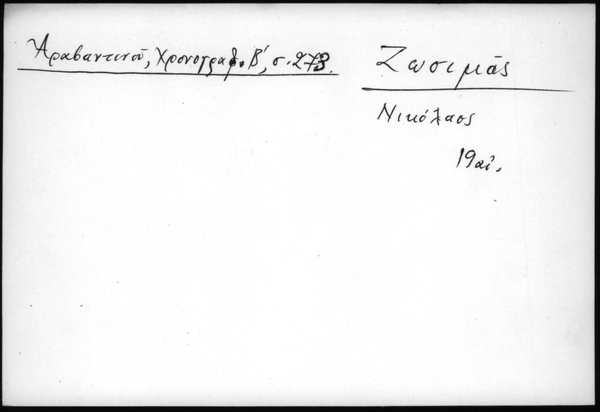 Ἀραβαντινοῦ, Χρονογραφ. Β΄, σ. 273.
Ζωσιμᾶς
Νικόλαος
19 αἰ.